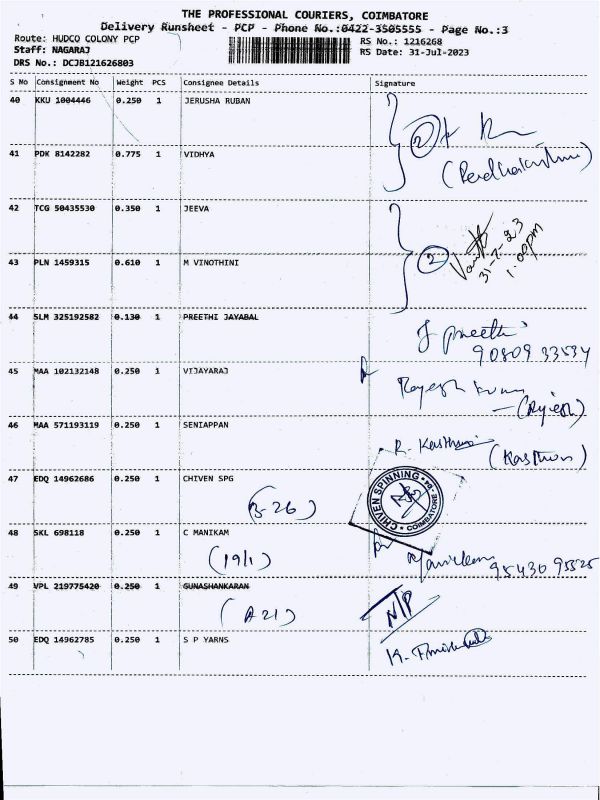 THE PROFESSIONAL COURIERS, COIMBATORE
Delivery Runsheet - PCP - Phone No.:0422-3505555 - Page No.:3
Route: HUDCO COLONY PCP
RS No.: 1216268
Staff: NAGARAJ
RS Date: 31-Jul-2023
DRS No.: DCJB121626803
S No Consignment No Weight PCS Consignee Details Signature
40 KKU 1004446 0.250 1 JERUSHA RUBAN
2
41 PDK 8142282 0.775 1 VIDHYA
42 TCG 50435530 0.350 1 JEEVA
2
31-7-23
1.00pm
43 PLN 1459315 0.610 1 M VINOTHINI
44 SLM 325192582 0.130 1 PREETHI JAYABAL
J preethi
90809 33534
45 MAA 102132148 0.250 1 VIJAYARAJ
46 MAA 571193119 0.250 1 SENIAPPAN
R. Kasthuri
47 EDQ 14962686 0.250 1 CHIVEN SPG
(B-26)
CHIVEN SPINNING
COIMBATORE
48 SKL 698118 0.250 1 C MANIKAM
(19/1)
95430 95525
49 VPL 219775420 0.250 1 GUNASHANKARAN
(A21)
N/P
50 EDQ 14962785 0.250 1 S P YARNS